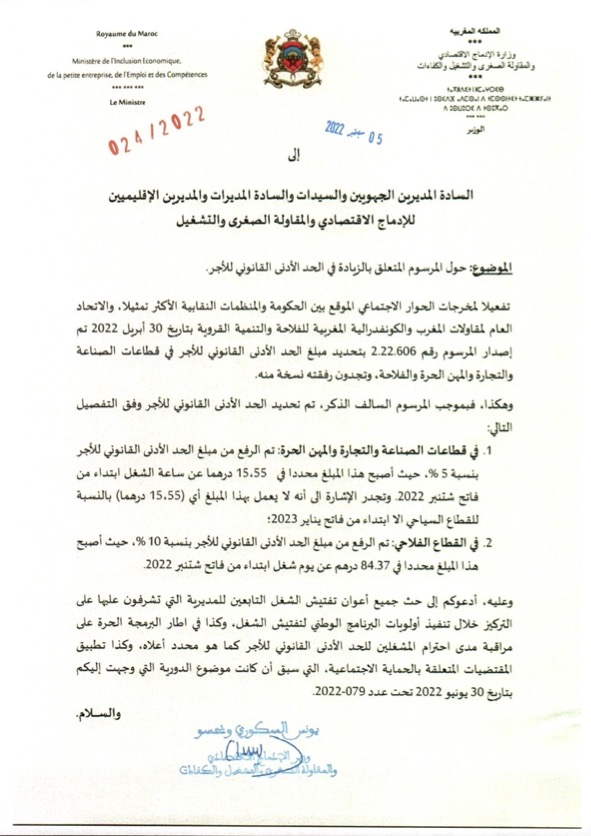 Royaume du Maroc
***
Ministère de l'Inclusion Economique,
de la petite entreprise, de l'Emploi et des Compétences
*** *** ***
Le Ministre
المملكة المغربية
***
وزارة الإدماج الاقتصادي
والمقاولة الصغرى والتشغيل والكفاءات
***
*** ***
الوزير
024/2022
05 شتنبر 2022
إلى
السادة المديرين الجهويين والسيدات والسادة المديرات والمديرين الإقليميين
للإدماج الاقتصادي والمقاولة الصغرى والتشغيل
الموضوع: حول المرسوم المتعلق بالزيادة في الحد الأدنى القانوني للأجر.
تفعيلا لمخرجات الحوار الاجتماعي الموقع بين الحكومة والمنظمات النقابية الأكثر تمثيلا، والاتحاد
العام لمقاولات المغرب والكونفدرالية المغربية للفلاحة والتنمية القروية بتاريخ 30 أبريل 2022 تم
إصدار المرسوم رقم 2.22.606 بتحديد مبلغ الحد الأدنى القانوني للأجر في قطاعات الصناعة
والتجارة والمهن الحرة والفلاحة، وتجدون رفقته نسخة منه.
وهكذا، فبموجب المرسوم السالف الذكر، تم تحديد الحد الأدنى القانوني للأجر وفق التفصيل
التالي:
1. في قطاعات الصناعة والتجارة والمهن الحرة: تم الرفع من مبلغ الحد الأدنى القانوني للأجر
بنسبة 5 %، حيث أصبح هذا المبلغ محددا في 15,55 درهما عن ساعة الشغل ابتداء من
فاتح شتنبر 2022. وتجدر الإشارة الى أنه لا يعمل بهذا المبلغ أي (15,55 درهما) بالنسبة
للقطاع السياحي الا ابتداء من فاتح يناير 2023؛
2. في القطاع الفلاحي: تم الرفع من مبلغ الحد الأدنى القانوني للأجر بنسبة 10 %، حيث أصبح
هذا المبلغ محددا في 84.37 درهم عن يوم شغل ابتداء من فاتح شتنبر 2022.
وعليه، أدعوكم إلى حث جميع أعوان تفتيش الشغل التابعين للمديرية التي تشرفون عليها على
التركيز خلال تنفيذ أولويات البرنامج الوطني لتفتيش الشغل، وكذا في اطار البرمجة الحرة على
مراقبة مدى احترام المشغلين للحد الأدنى القانوني للأجر كما هو محدد أعلاه، وكذا تطبيق
المقتضيات المتعلقة بالحماية الاجتماعية، التي سبق أن كانت موضوع الدورية التي وجهت إليكم
بتاريخ 30 يونيو 2022 تحت عدد 079-2022.
والسلام.
يونس السكوري
وزير الإدماج الاقتصادي
والمقاولة الصغرى والتشغيل والكفاءات